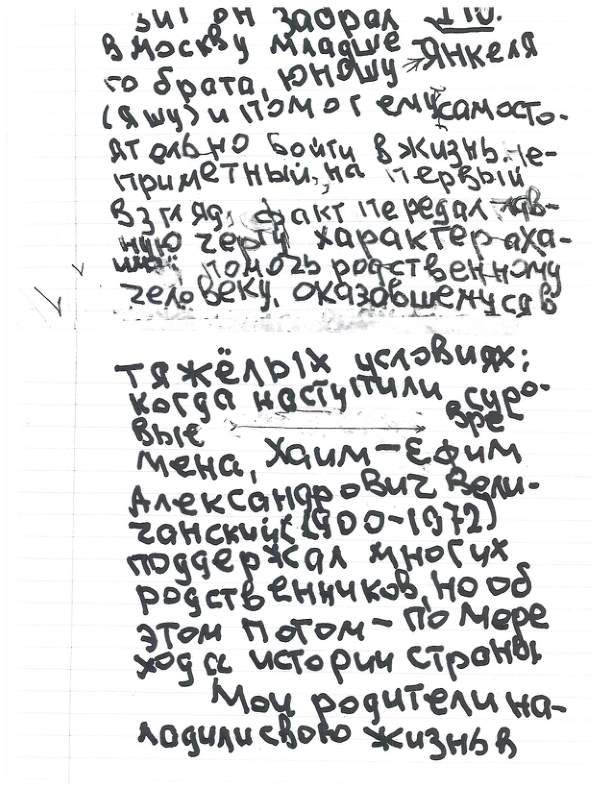 зит он забрал
в Москву младше
го брата, юношу Янкеля
(Яшу) и помог ему самосто-
ятельно войти в жизнь. Не-
приметный, на первый
взгляд, факт передал глав-
ную черту характера Ха-
има помочь родственному
человеку, оказавшемуся в
тяжёлых условиях;
когда наступили суро-
вые вре
мена, Хаим-Ефим
Александрович Вели-
чанский (1900-1972)
поддержал многих
родственников, но об
этом потом - по мере
хода истории страны
Мои родители на-
ладили свою жизнь в